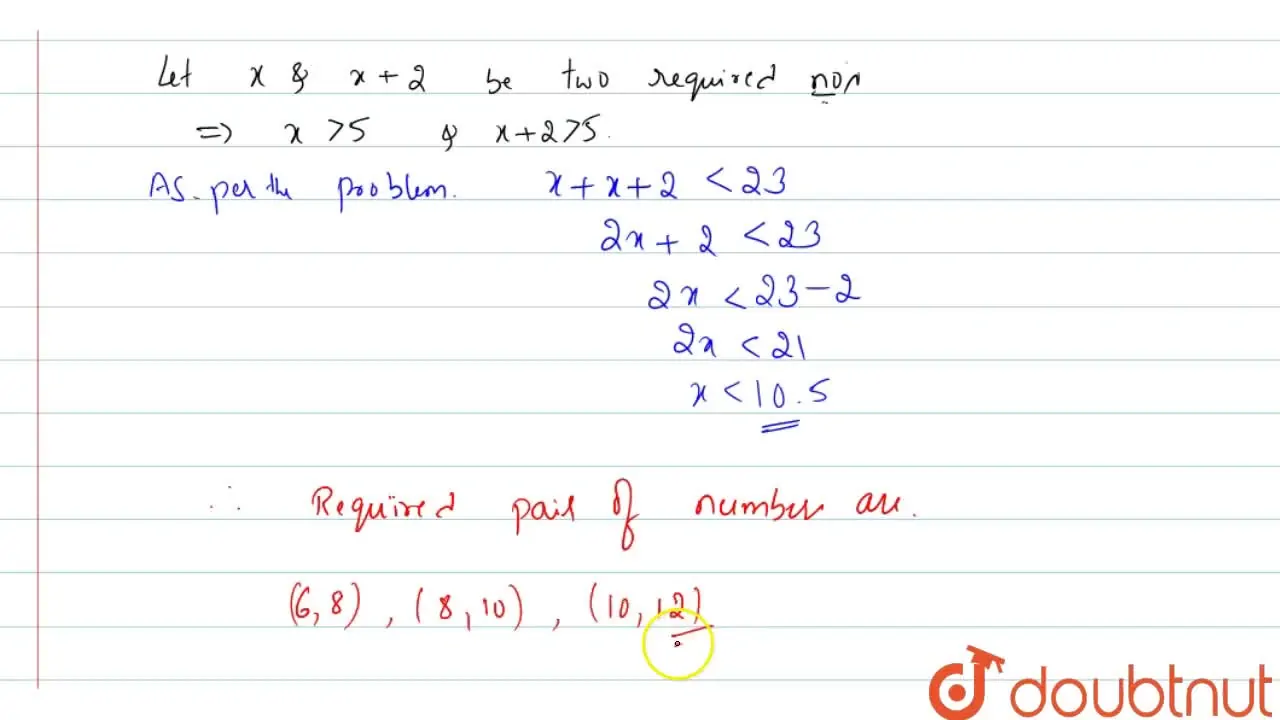 Let x & x + 2 be two required nos
=> x > 5 & x + 2 > 5.
As per the problem. x + x + 2 < 23
2x + 2 < 23
2x < 23 - 2
2x < 21
x < 10.5
∴ Required pair of number are.
(6, 8) , (8, 10) , (10, 12)
doubtnut